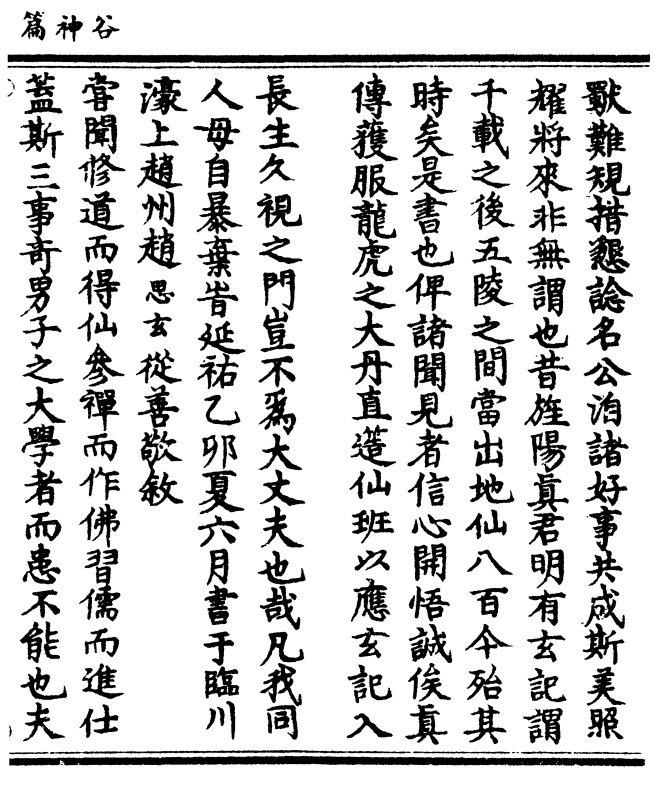 谷神篇
猷難規措懇諗名公洎諸好事共成斯美照
耀將來非無謂也昔旌陽眞君明有玄記謂
千載之後五陵之間當出地仙八百今殆其
時矣是書也俾諸聞見者信心開悟誠俟眞
傳獲服龍虎之大丹直造仙班以應玄記入
長生久視之門豈不爲大丈夫也哉凡我同
人毋自暴棄旹延祐乙卯夏六月書于臨川
濠上趙州趙思玄從善敬敘
嘗聞修道而得仙參禪而作佛習儒而進仕
蓋斯三事奇男子之大學者而患不能也夫